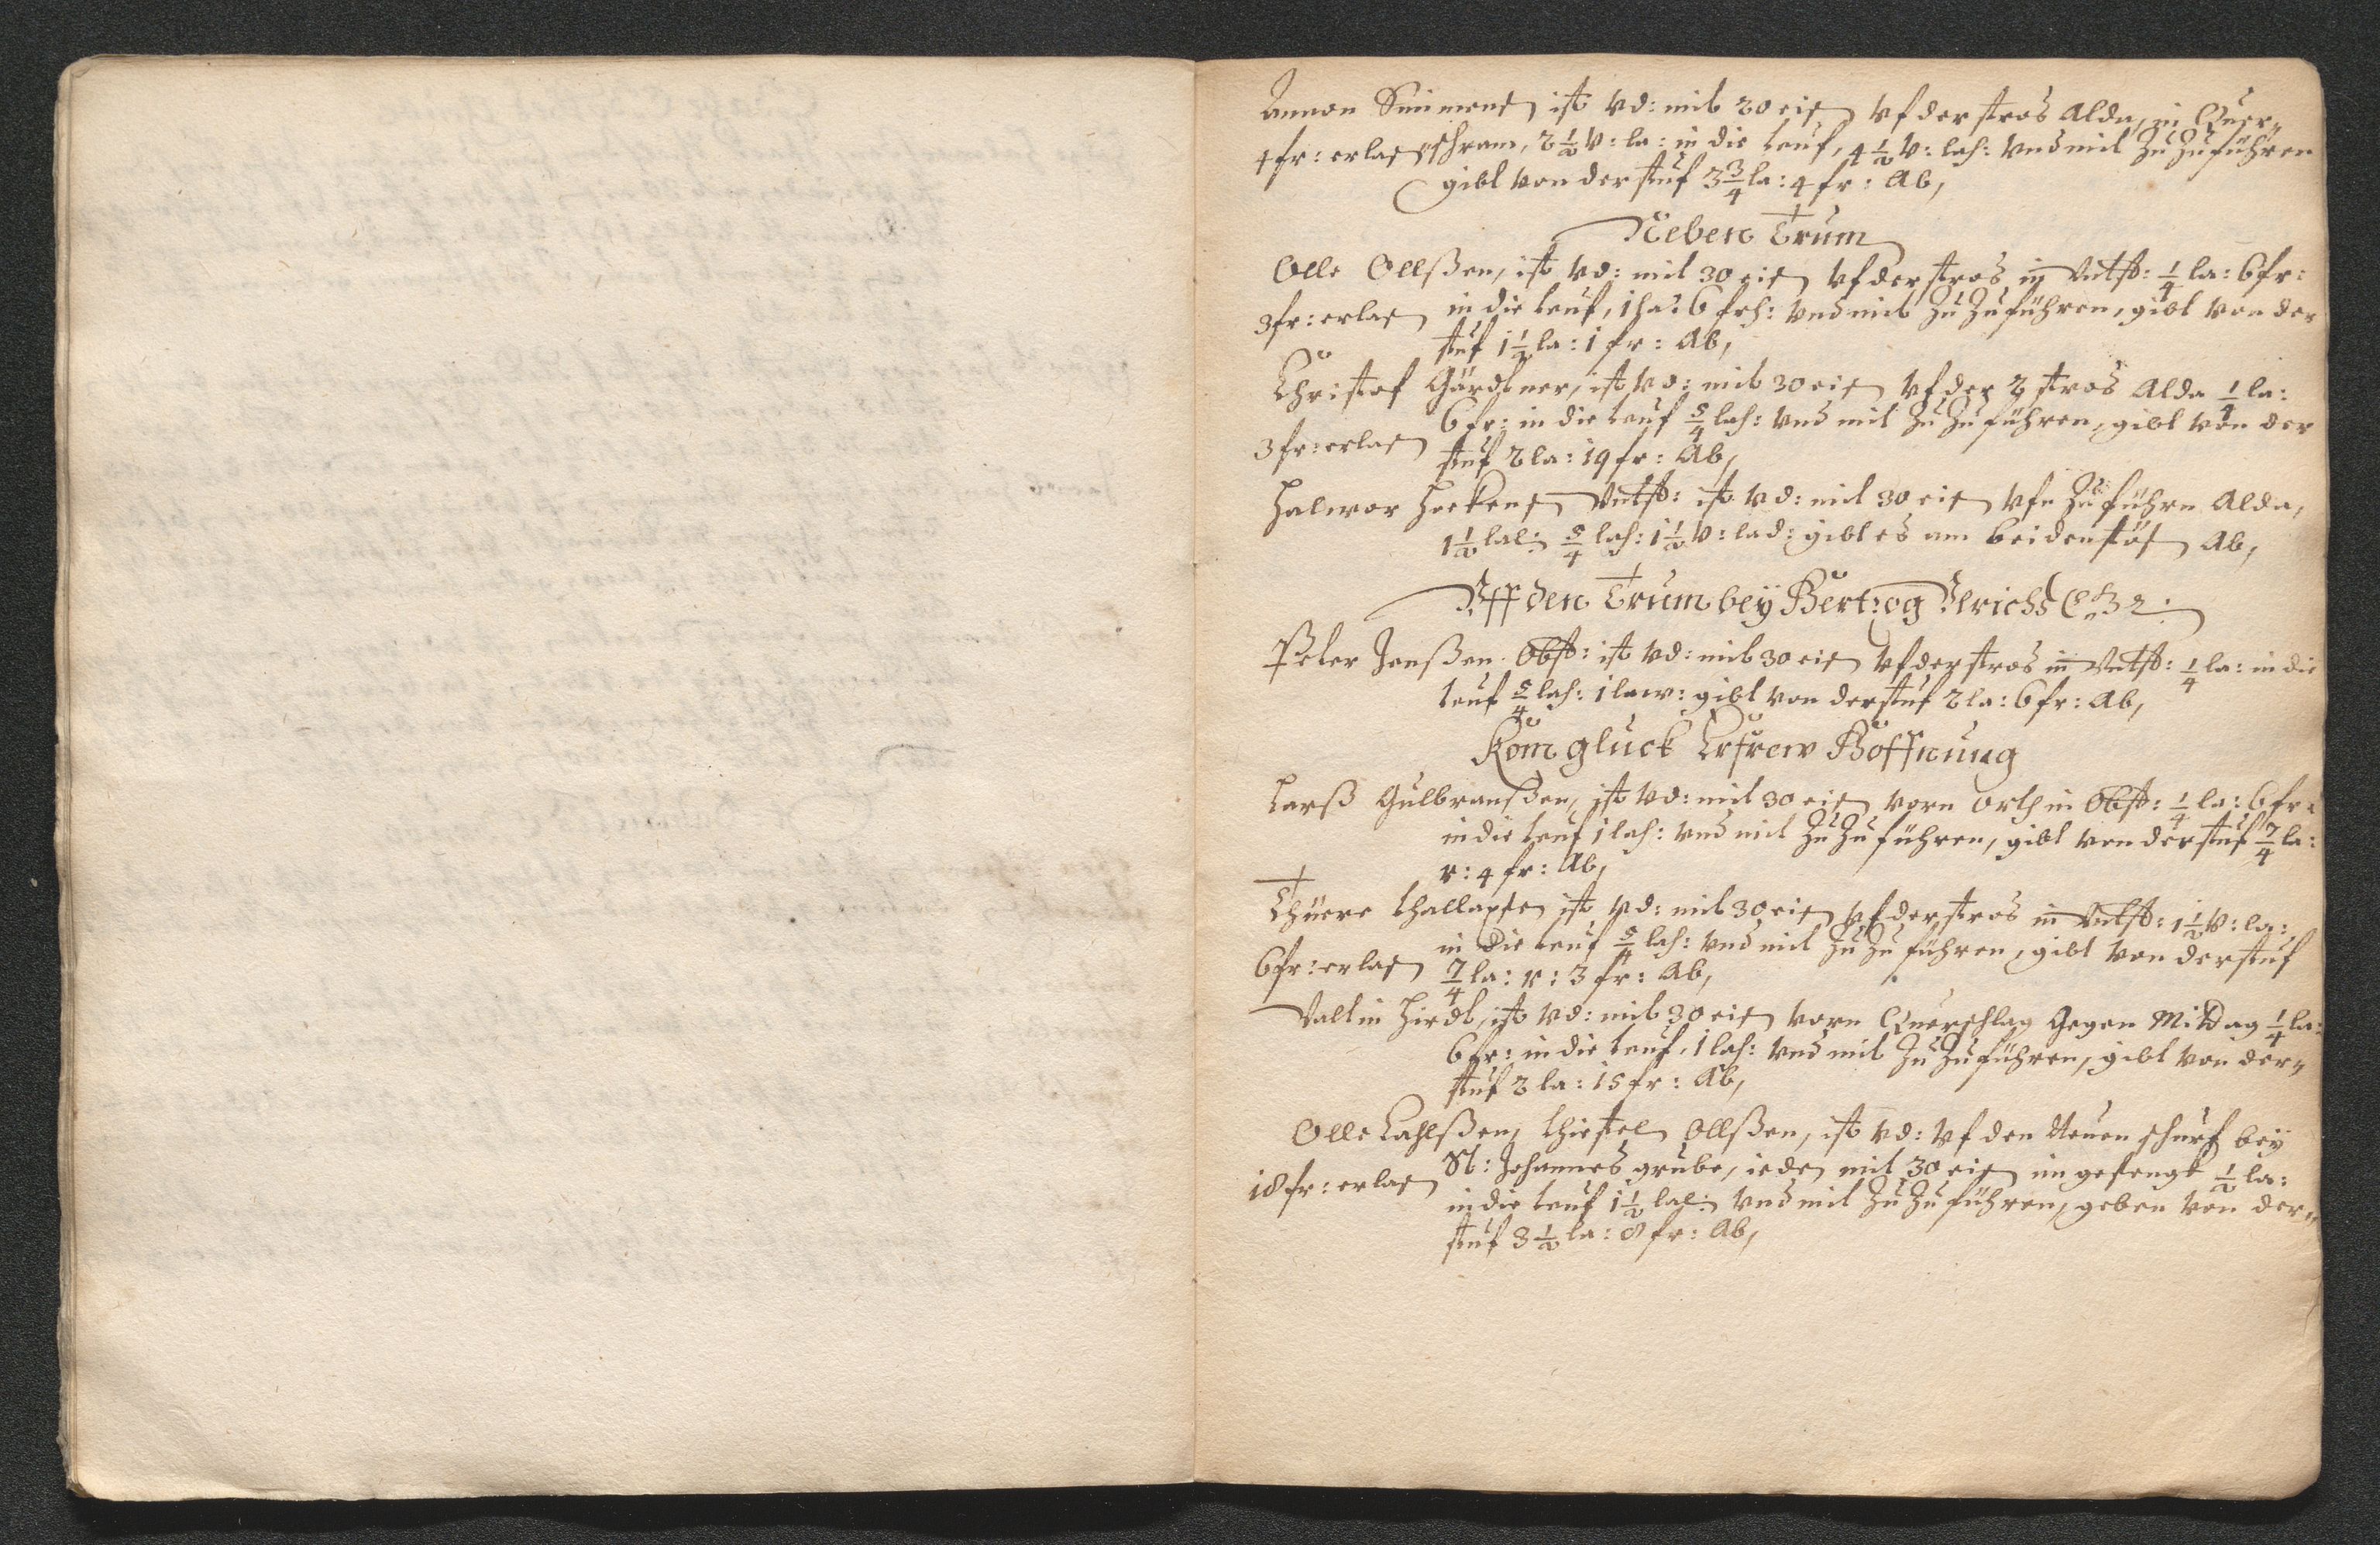 Amon Simmens ist vd: mit 20 eis vf der stros Alda, in Quer„
4 fr: erlas schram, 2 1/2 v: la: in die teuf, 4 1/2 v: lah: vnd mit Zu Zu führen
gibt von der stuf 3 3/4 la: 4 fr: Ab,
Neben Trum
Olle Ollßen, ist vd: mit 30 eis vf der stros in Vntst: 1/4 la: 6 fr:
3 fr: erlas in die teuf, 1 la: 6 frh: vnd mit Zu Zu führen, gibt von der
stuf 1 1/2 la: 1 fr: Ab,
Christof Gärdtner, ist vd: mit 30 eis vf der 2 stros Alda 1/4 la:
6 fr: in die teuf 5/4 lah: vnd mit Zu Zu führen, gibt von der
3 fr: erlas stuf 2 la: 19 fr: Ab,
Halwor Vntst: ist vd: mit 30 eis vfn Zu führn Alda,
1 1/2 lal: 5/4 lah: 1 1/2 v: lad: gibt es am beiden Ab,
Vff den Trum bey Hertzog Vlrichs
Peter Jenßen Obst: ist vd: mit 30 eis vf der stros in Vntst: 1/4 la: in die
teuf 5/4 lah: 1 law: gibt von der stuf 2 la: 6 fr: Ab,
Kom gluck Erfrew Hoffnung
Larß Gulbranßen, ist vd: mit 30 eis vorn Orth in Obst: 1/4 la: 6 fr:
in die teuf 1 lah: vnd mit Zu Zu führen, gibt von der stuf 7/4 la:
v: 4 fr: Ab,
Thuere ist vd: mit 30 eis vf der stros in Vntst: 1 1/2 v: la:
in die teuf 5/4 lah: vnd mit Zu Zu führen, gibt von der stuf
6 fr: erlas 7/4 la: v: 3 fr: Ab,
Valtin Hirdt, ist vd: mit 30 eis vorn Querschlag Gegen Mitdag 1/4 la:
6 fr: in die teuf, 1 lah: vnd mit Zu Zu führen, gibt von der„
stuf 2 la: 15 fr: Ab,
Olle Kahlßen, Ollßen, ist vd: vf den Neuen schurf bey
18 fr: erlas St: Johannes grube, jeder mit 30 eis im gesengk 1/2 la:
in die teuf 1 1/2 lal: vnd mit Zu Zu führen, geben von der„
stuf 3 1/2 la: 8 fr: Ab,